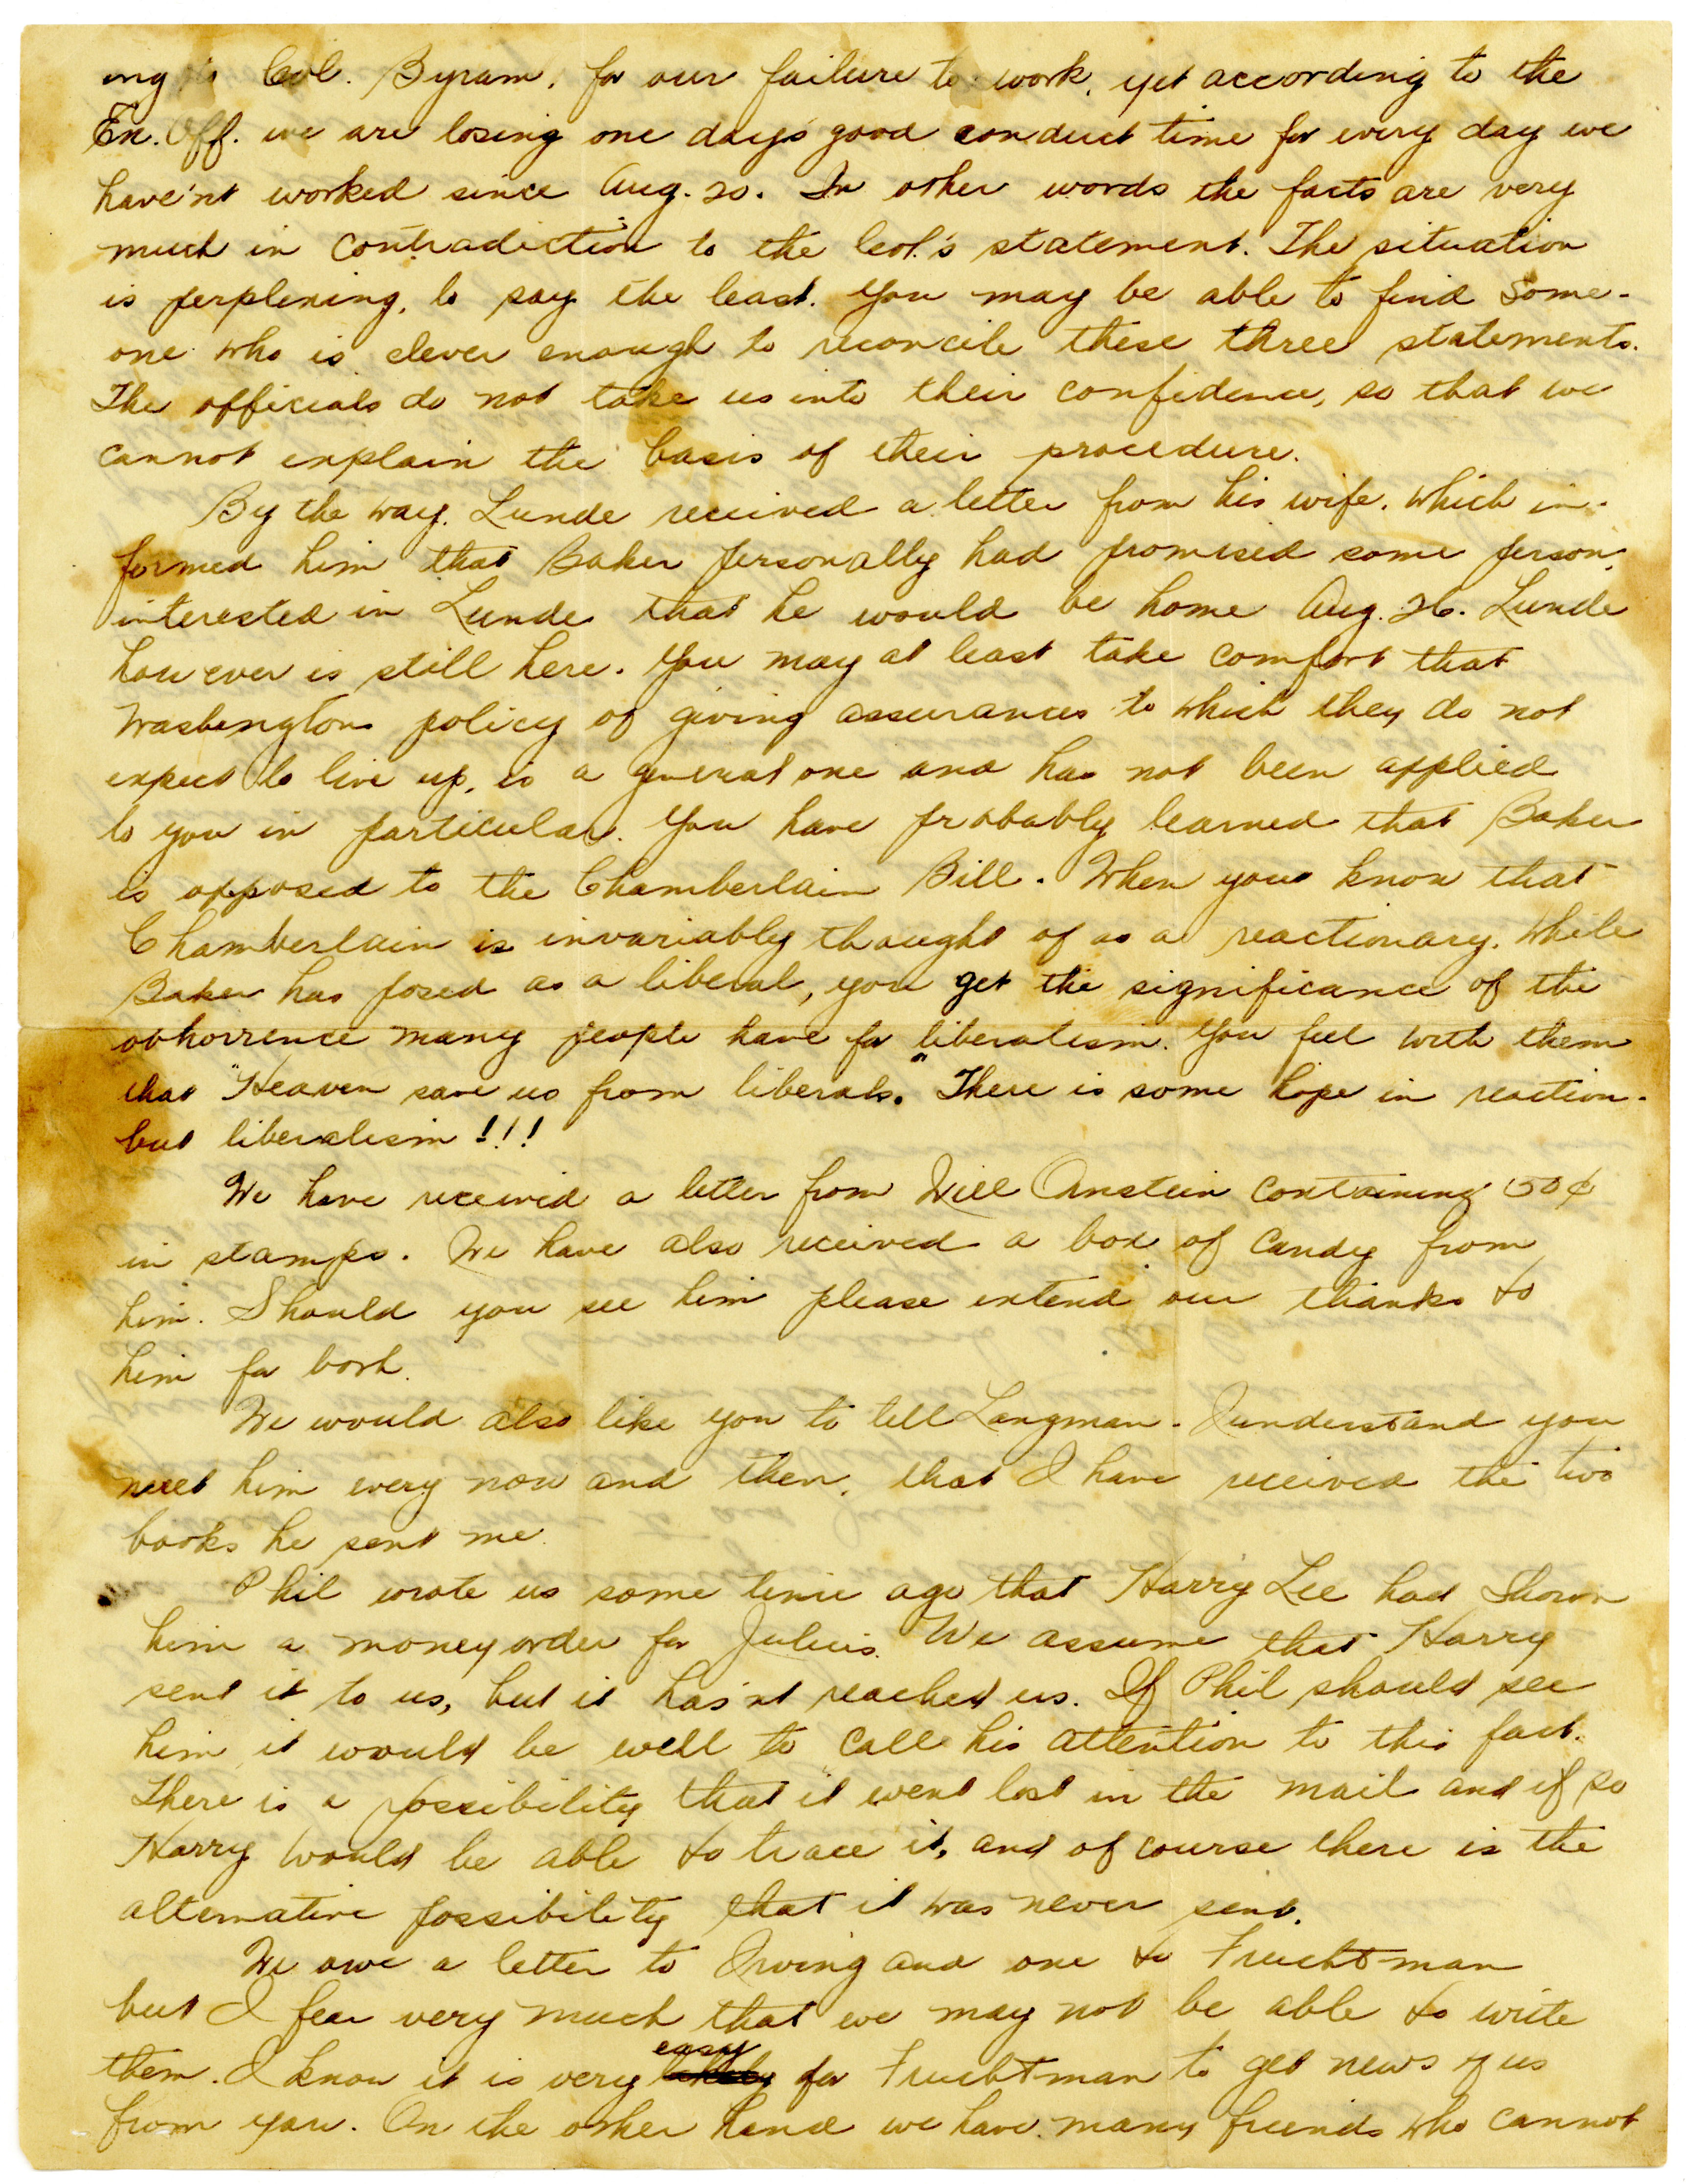 ing to Col. Byram, for our failure to work, yet according to the
Ex. Off. we are losing one day's good conduct time for every day we
have'nt worked since Aug. 20. In other words the facts are very
much in contradiction to the Col.'s statement. The situation
is perplexing, to say the least. You may be able to find some-
one who is clever enough to reconcile these three statements.
The officials do not take us into their confidence, so that we
cannot explain the basis of their procedure.
By the way, Lunde received a letter from his wife, which in-
formed him that Baker personally had promised some person,
interested in Lunde that he would be home Aug. 26. Lunde
however is still here. You may at least take comfort that
Washington's policy of giving assurances to which they do not
expect to live up, is a general one and has not been applied
to you in particular. You have probably learned that Baker
is opposed to the Chamberlain Bill. When you know that
Chamberlain is invariably thought of as a reactionary, while
Baker has posed as a liberal, you get the significance of the
abhorrence many people have for liberalism. You feel with them
that "Heaven save us from liberals." There is some hope in reaction-
but liberalism!!!
We have received a letter from Will Ornstein containing 50¢
in stamps. We have also received a box of candy from
him. Should you see him please extend our thanks to
him for both.
We would also like you to tell Langman - I understand you
meet him every now and then, that I have received the two
books he sent me.
Phil wrote us some time ago that Harry Lee had shown
him a money order for Julius. We assume that Harry
sent it to us, but it has'nt reached us. If Phil should see
him it would be well to call his attention to this fact.
There is a possibility that it went lost in the mail and if so
Harry would be able to trace it, and of course there is the
alternative possibility that it was never sent.
We owe a letter to Irving and one to Fruchtman
but I fear very much that we may not be able to write
them. I know it is very easy for Fruchtman to get news of us
from you. On the other hand we have many friends who cannot